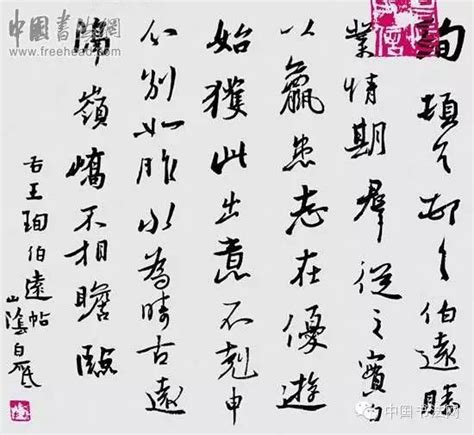 中國書法網
www.freehead.com
珣頓首頓首伯遠勝
業情期羣從之寶自
以羸患志在優遊
始獲此出意不剋申
分別如昨永為疇古遠
隔嶺嶠不相瞻臨
右王珣伯遠帖
山陰白砥
中国书法网